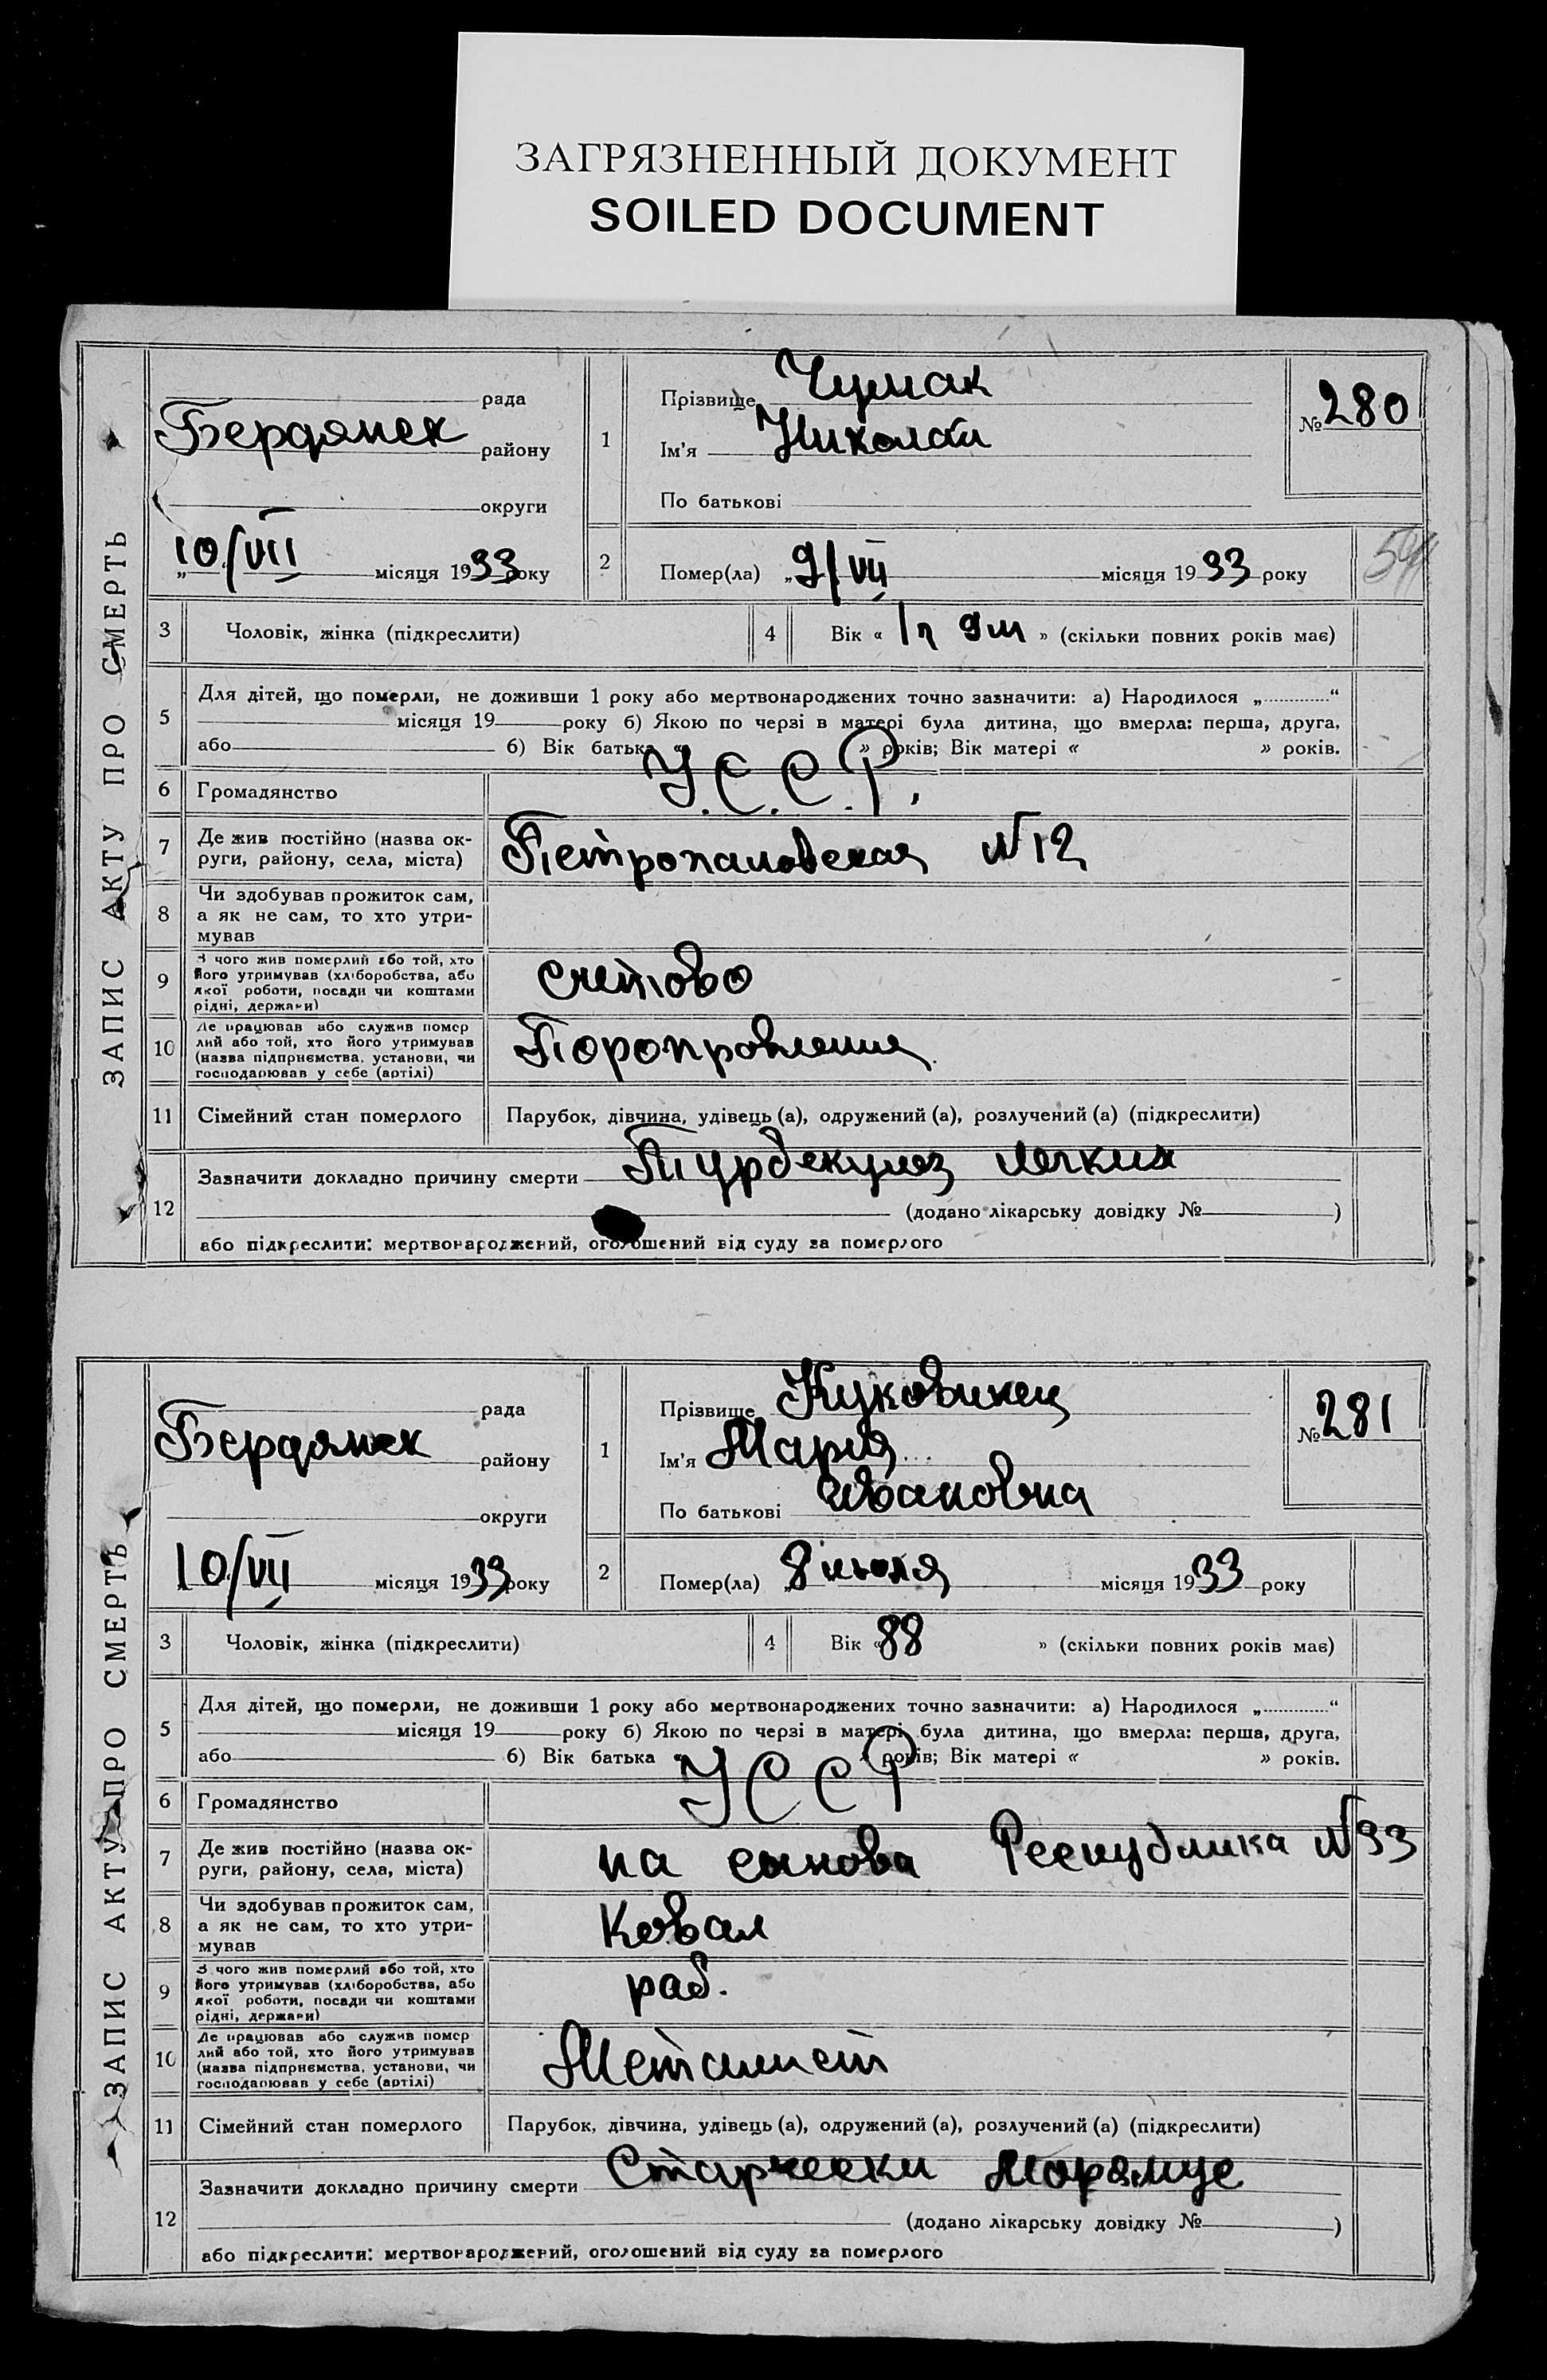 ЗАГРЯЗНЕННЫЙ ДОКУМЕНТ
SOILED DOCUMENT
ЗАПИС АКТУ ПРО СМЕРТЬ
рада
Бердянск району
округи
10/VII місяця 1933 року
1
Прізвище Чумак
Ім'я Николай
По батькові
№ 280
2
Помер(ла) „9/VII місяця 1933 року
3 Чоловік, жінка (підкреслити)
4 Вік « 1 г 9 м » (скільки повних років має)
5 Для дітей, що померли, не доживши 1 року або мертвонароджених точно зазначити: а) Народилося „ “
місяця 19 року б) Якою по черзі в матері була дитина, що вмерла: перша, друга,
або б) Вік батька « » років; Вік матері « » років.
6 Громадянство У.С.С.Р.
7 Де жив постійно (назва ок-
руги, району, села, міста)
№ 12
8 Чи здобував прожиток сам,
а як не сам, то хто утри-
мував
9 З чого жив померлий або той, хто
його утримував (хліборобства, або
якої роботи, посади чи коштами
рідні, держави)
счетово
10 Де працював або служив помер
лий або той, хто його утримував
(назва підприємства, установи, чи
господарював у себе (артілі)
11 Сімейний стан померлого Парубок, дівчина, удівець (а), одружений (а), розлучений (а) (підкреслити)
12 Зазначити докладно причину смерти Турбекулез легких
(додано лікарську довідку № )
або підкреслити: мертвонароджений, оголошений від суду за померлого
ЗАПИС АКТУ ПРО СМЕРТЬ
рада
Бердянск району
округи
10/VII місяця 1933 року
1
Прізвище Куковинец
Ім'я Мария
По батькові Ивановна
№ 281
2
Помер(ла) „8 июля місяця 1933 року
3 Чоловік, жінка (підкреслити)
4 Вік « 88 » (скільки повних років має)
5 Для дітей, що померли, не доживши 1 року або мертвонароджених точно зазначити: а) Народилося „ “
місяця 19 року б) Якою по черзі в матері була дитина, що вмерла: перша, друга,
або б) Вік батька « » років; Вік матері « » років.
6 Громадянство УССР
7 Де жив постійно (назва ок-
руги, району, села, міста)
Республика № 33
8 Чи здобував прожиток сам,
а як не сам, то хто утри-
мував
Ковал
9 З чого жив померлий або той, хто
його утримував (хліборобства, або
якої роботи, посади чи коштами
рідні, держави)
раб.
10 Де працював або служив помер
лий або той, хто його утримував
(назва підприємства, установи, чи
господарював у себе (артілі)
Металист
11 Сімейний стан померлого Парубок, дівчина, удівець (а), одружений (а), розлучений (а) (підкреслити)
12 Зазначити докладно причину смерти Старчески
(додано лікарську довідку № )
або підкреслити: мертвонароджений, оголошений від суду за померлого